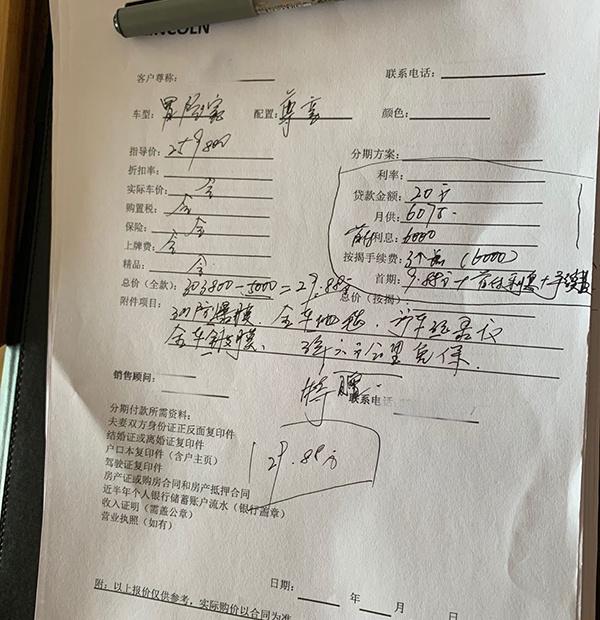 LINCOLN
客户尊称: 联系电话:
车型: 冒险家 配置: 尊享 颜色:
指导价: 259800 分期方案:
折扣率: 利率:
实际车价: 含 贷款金额: 20万
购置税: 含 月供: 6075.
保险: 含 利息: 6000
上牌费: 含 按揭手续费: 3个点 (6000)
精品: 含 首期: 9.88万+首付利息+手续费
总价(全款): 303800-5000=29.88万 总价(按揭)
附件项目: 3M防爆膜、全车地毯、行车记录仪
全车镀膜、
销售顾问: 联系电话
分期付款所需资料:
夫妻双方身份证正反面复印件
结婚证或离婚证复印件
户口本复印件(含户主页) 29.88万
驾驶证复印件
房产证或购房合同和房产抵押合同
近半年个人银行储蓄账户流水(银行盖章)
收入证明(需盖公章)
营业执照(如有)
日期: 年 月 日
附:以上报价仅供参考,实际购价以合同为准